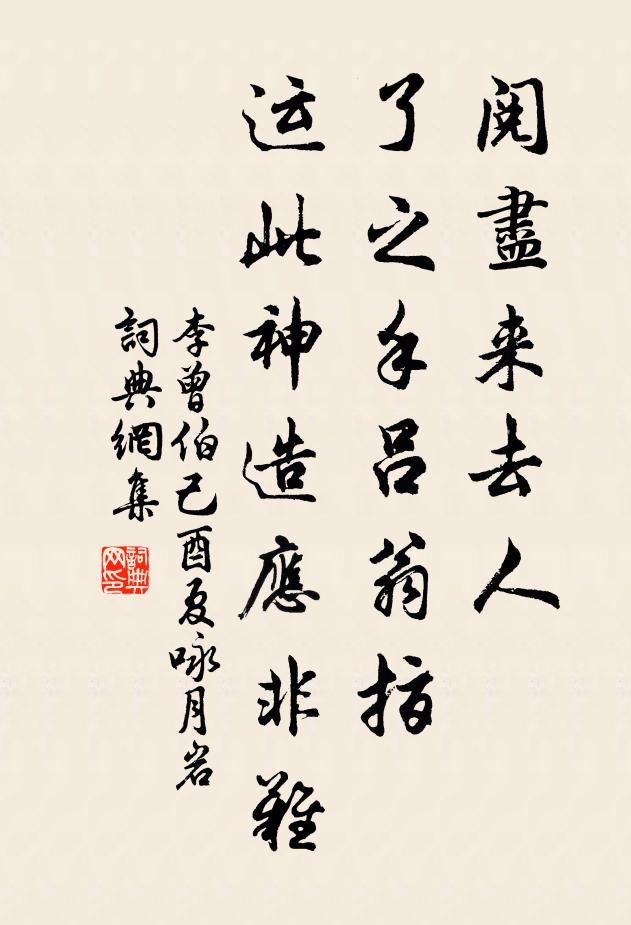 閱盡来去人
了之手吕翁指
运此神造應非難
李曾伯己酉夏咏月岩
詞典網集
詞典网印